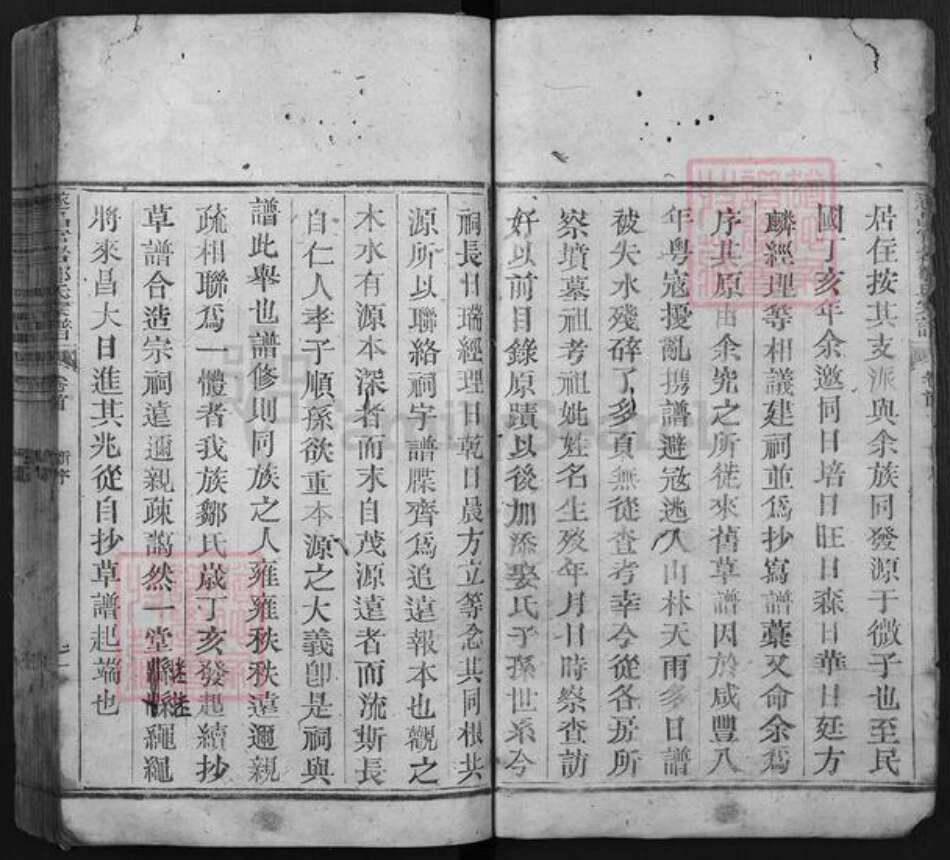 居住按其支派與余族同發源于微子也至民
國丁亥年余邀同日培日旺日森日華日廷方
麟經理等相議建祠並爲抄寫譜藁又命余爲
序其原由余究之所從來舊草譜因於咸豐八
年粤寇擾亂携譜避寇逃入山林天雨多日譜
被失水殘碎了多頁無從查考幸今從各房所
察墳墓祖考祖妣姓名生歿年月日時察查訪
好以前目錄原蹟以後加添娶氏子孫世系今
祠長廿瑞經理日乾日晨方立等念其同根共
源所以聯絡祠宇譜牒齊爲追遠報本也觀之
木水有源本深者而末自茂源遠者而流斯長
自仁人孝子順孫欲重本源之大義卽是祠與
譜此舉也譜修則同族之人雍雍秩秩遠邇親
疏相聯爲一體者我族鄒氏歲丁亥發起續抄
草譜合造宗祠遠邇親疎藹然一堂繼繼繩繩
將來昌大日進其兆從自抄草譜起端也
鄒氏宗譜
卷首